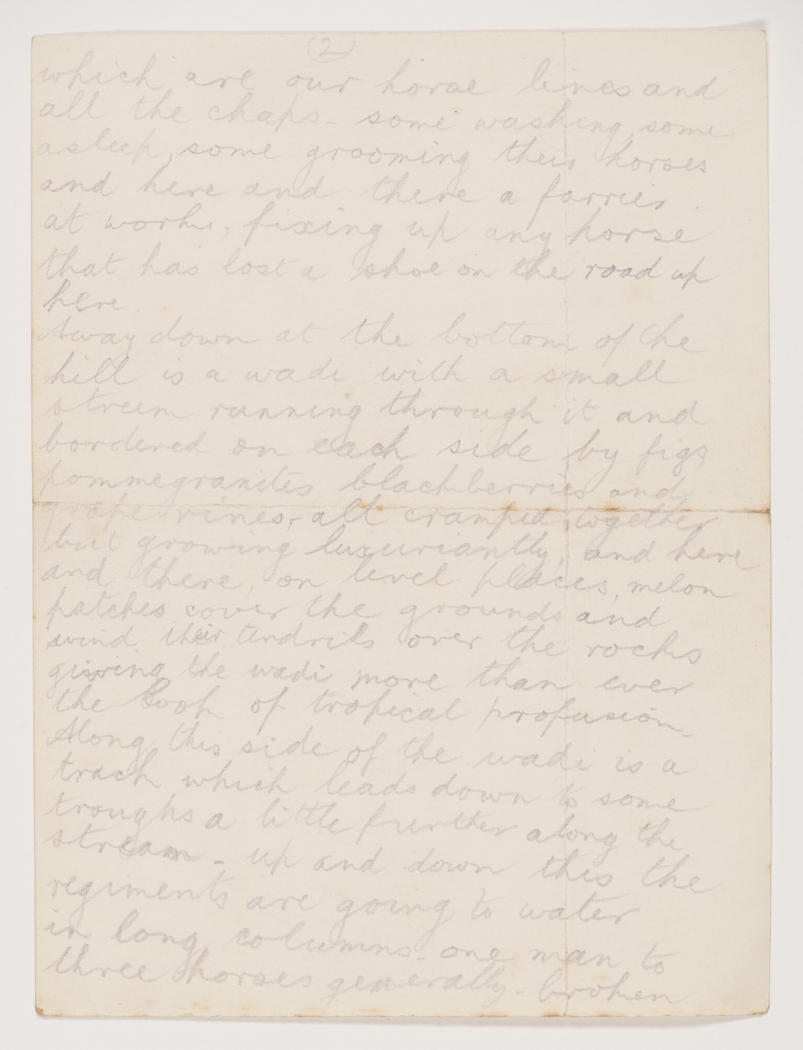 (2)
which are our horse lines and
all the chaps - some washing, some
asleep, some grooming their horses
and here and there a farrier
at work, fixing up any horse
that has lost a shoe on the road up
here.
Away down at the bottom of the
hill is a wadi with a small
streem running through it and
bordered on each side by figs
pommegranites blackberries and
grape vines, all cramped together
but growing luxuriantly, and here
and there, on level places, melon
patches cover the grounds and
wind their tendrils over the rocks
giving the wadi more than ever
the look of tropical profusion.
Along this side of the wadi is a
track which leads down to some
troughs a little further along the
stream - up and down this the
regiments are going to water
in long columns - one man to
three horses generally - broken